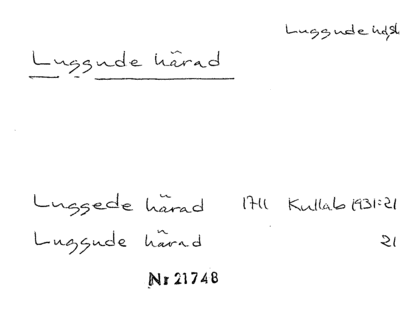 Luggude hdsk
Luggude härad
Luggede härad 1711 Kullab 1931:21
Luggude härad 21
Nr 21748